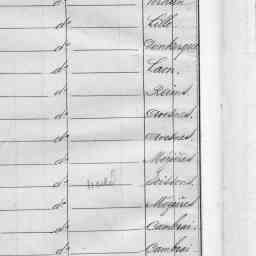 do
do Lille
do Dunkerque
do Laon.
do Reims
do Avesnes.
do Avesnes.
do Mézières
do Soissons.
do Mézières
do Cambrai.
do Cambrai